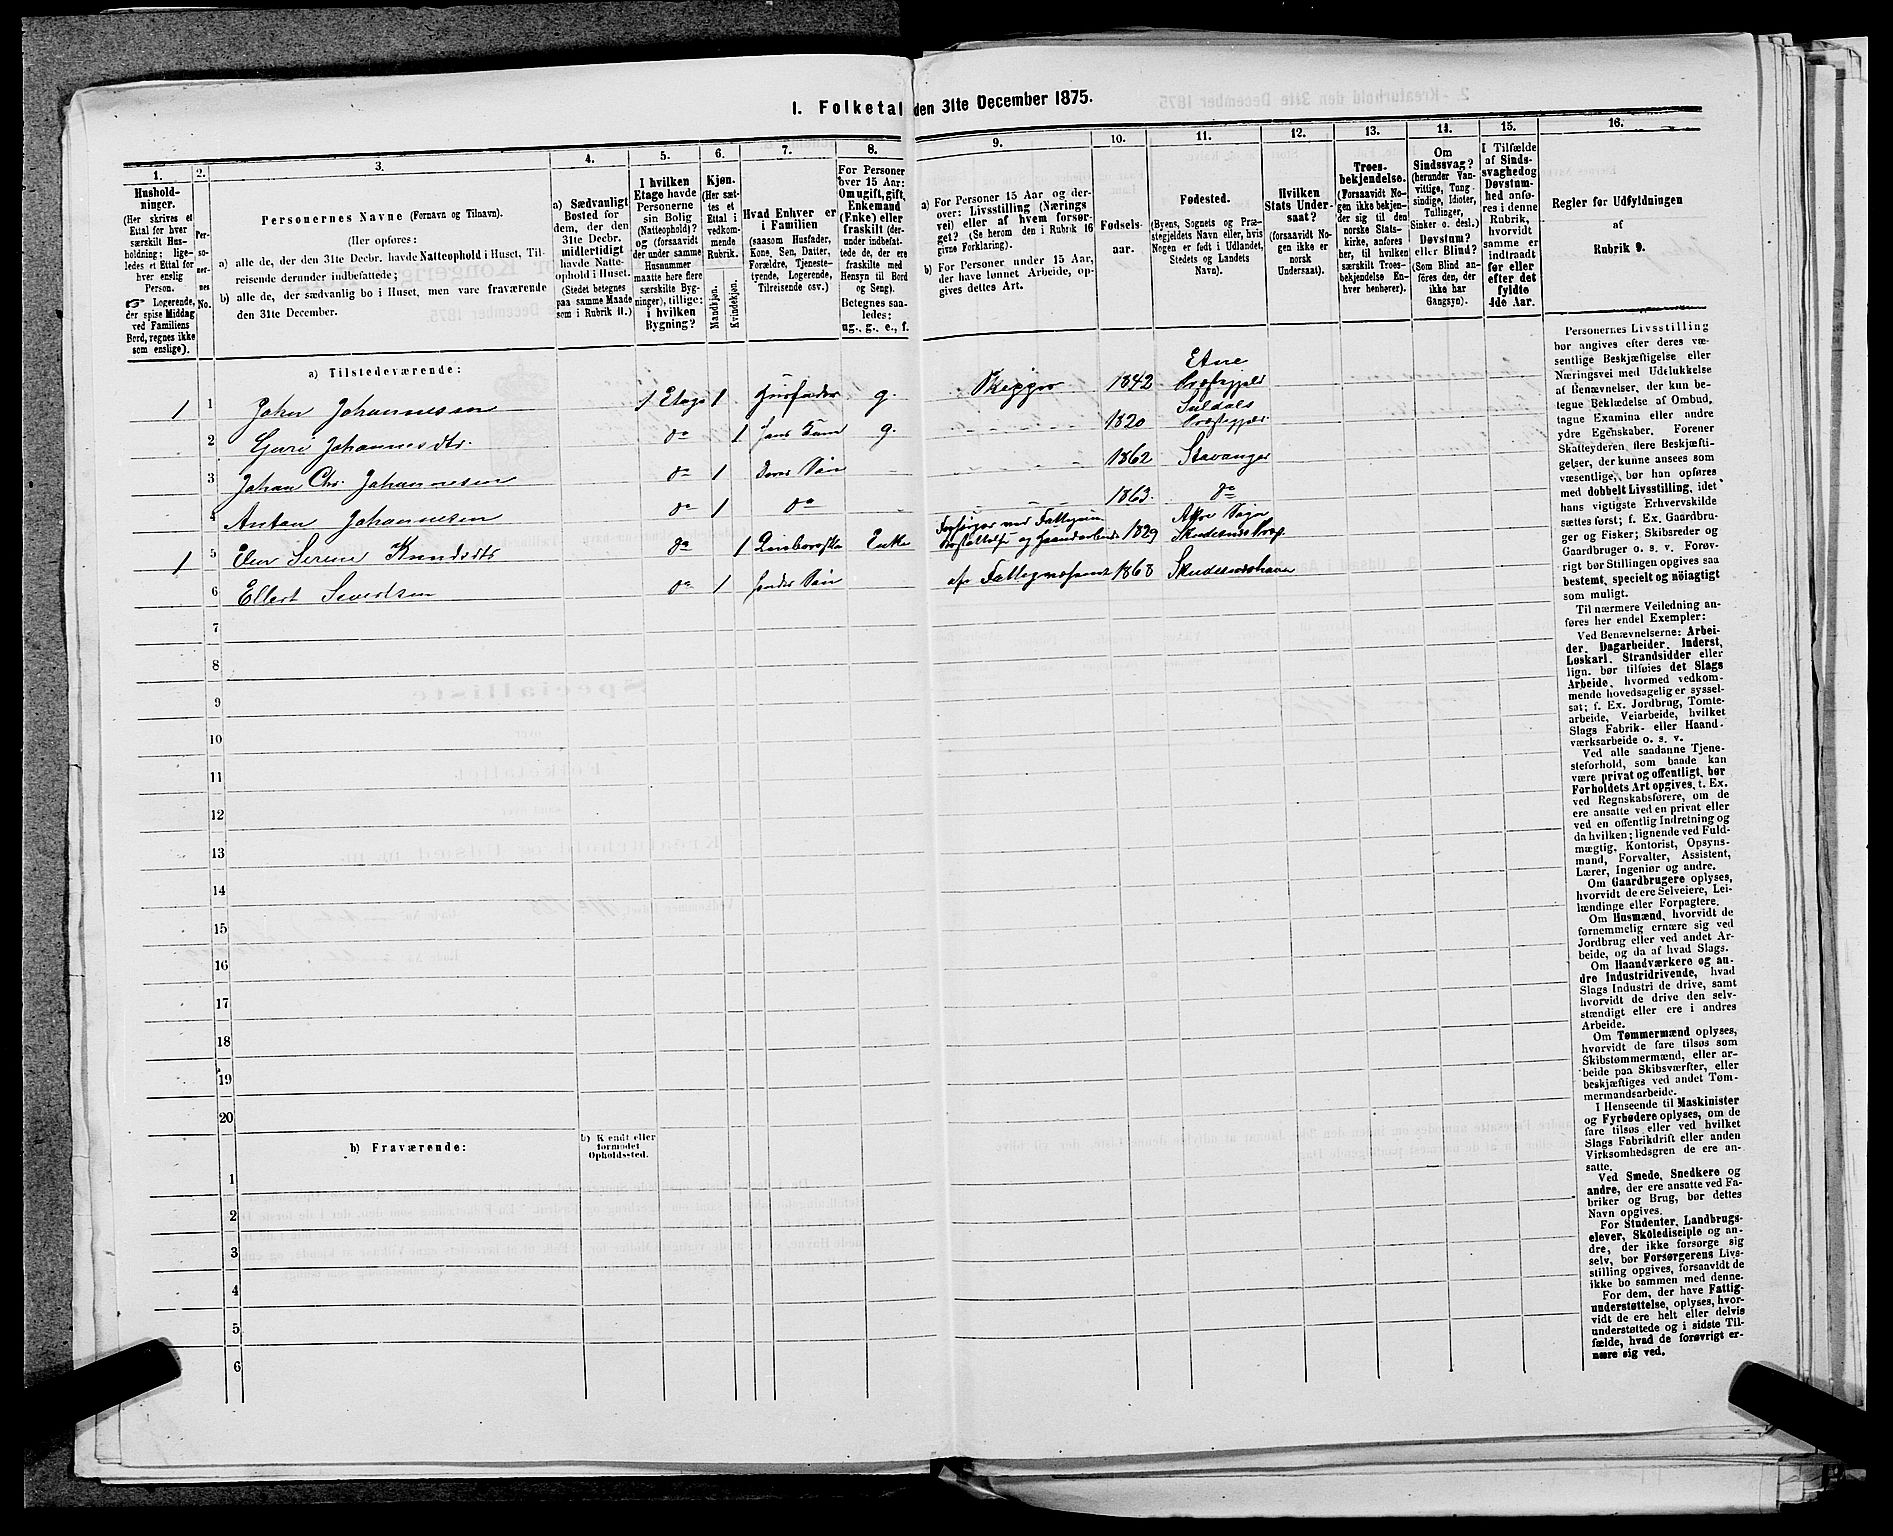 I. Folketal den 31te December 1875.
1.
Hushold-
ninger.
(Her skrives et
Ettal for hver
særskilt Hus-
holdning; lige-
ledes et Ettal for
hver enslig
Person.
☞ Logerende,
der spise Middag
ved Familiens
Bord, regnes ikke
som enslige).
2.
Per-
so-
ner-
nes
No.
3.
Personernes Navne (Fornavn og Tilnavn).
(Her opføres:
a) alle de, der den 31te Decbr. havde Natteophold i Huset, Til-
reisende derunder indbefattede;
b) alle de, der sædvanlig bo i Huset, men vare fraværende
den 31te December.
4.
a) Sædvanligt
Bosted for
dem, der den
31te Decbr.
midlertidigt
havde Natte-
ophold i Huset.
(Stedet betegnes
paa samme Maade
som i Rubrik 11.)
5.
I hvilken
Etage havde
Personerne
sin Bolig
(Natteophold)?
og (forsaavidt
der under samme
Husnummer
maatte høre flere
særskilte Byg-
ninger), tillige:
i hvilken
Bygning?
6.
Kjøn.
(Her sæt-
tes et
Ettal i
vedkom-
mende
Rubrik.
Mandkjøn.
Kvindekjøn.
7.
Hvad Enhver er
i Familien
(saasom Husfader,
Kone, Søn, Datter,
Forældre, Tjeneste-
trende, Logerende,
Tilreisende osv.)
8.
For Personer
over 15 Aar:
Om ugift, gift,
Enkemand
(Enke) eller
fraskilt (der-
under indbefat-
tede de, der ere
fraskilte med
Hensyn til Bord
og Seng).
Betegnes saa-
ledes:
ug., g., e., f.
9.
a) For Personer 15 Aar og der-
over: Livsstilling (Nærings
vei) eller af hvem forsør-
get? (Se herom den i Rubrik 16
givne Forklaring).
b) For Personer under 15 Aar,
der have lønnet Arbeide, op-
gives dettes Art.
10.
Fødsels-
aar.
11.
Fødested.
(Byens, Sognets og Præ-
stegjeldets Navn eller, hvis
Nogen er født i Udlandet,
Stedets og Landets
Navn).
12.
Hvilken
Stats Under-
saat?
(forsaavidt No-
gen ikke er
norsk
Undersaat).
13.
Troes-
bekjendelse.
(Forsaavidt No-
gen ikke bekjen-
der sig til den
norske Stats-
kirke, anføres
her, til hvilken
særskilt Troes-
bekjendelse En-
hver henhører).
14.
Om
Sindssvag?
(herunder Van-
vittige, Tung-
sindige, Idioter,
Tullinger,
Sinker o. desl.)
Døvstum?
eller Blind?
(Som Blind an-
føres den, der
ikke har
Gangsyn).
15.
I Tilfælde
af Sinds-
svaghed og
Døvstum-
hed anfø-
res i denne
Rubrik,
hvorvidt
samme er
indtraadt
før eller
efter det
fyldte
4de Aar.
16.
Regler for Udfyldningen
af
Rubrik 9.
a) Tilstedeværende:
1 1 John Johannessen 1 Etage 1 Husfader g. Skipper 1842 Etne Præstgjeld
2 Guri Johannesdtr. do 1 Hans Kone g. 1820 Suldals Præstegjeld
3 Johan Chr. Johannesen do 1 deres Søn 1862 Stavanger
4 Anton Johannesen do 1 do 1863. do
1 5 Elen Serine Knudsdtr do 1 Enke 1829
6 Ellert Sivertsen do 1 hendes Søn af Fattigvæsenet 1868 Skudesneshavn
7
8
9
10
11
12
13
14
15
16
17
18
19
20
b) Fraværende:
b) Kjendt eller
formodet
Opholdssted.
1
2
3
4
5
6
Personernes Livsstilling
bør angives efter deres væ-
sentlige Beskjæftigelse eller
Næringsvei med Udelukkelse
af Benævnelser, der kun be-
tegne Beklædelse af Ombud,
tagne Examina eller andre
ydre Egenskaber. Forener
Skatteyderen flere Beskjæfti-
gelser, der kunne ansees som
væsentlige, bør han opføres
med dobbelt Livsstilling, idet
hans vigtigste Erhvervskilde
sættes først; f. Ex. Gaardbru-
ger og Fisker; Skibsreder og
Gaardbruger o. s. v. Forøv-
rigt bør Stillingen opgives saa
bestemt, specielt og nöiagtigt
som muligt.
Til nærmere Veiledning an-
føres her endel Exempler:
Ved Benævnelserne: Arbei-
der, Dagarbeider, Inderst,
Løskarl, Strandsidder eller
lign. bør tilføies det Slags
Arbeide, hvormed vedkom-
mende hovedsagelig er syssel-
sat; f. Ex. Jordbrug, Tomte-
arbeide, Veiarbeide, hvilket
Slags Fabrik- eller Haand-
værksarbeide o. s. v.
Ved alle saadanne Tjene-
steforhold, som baade kan
være privat og offentligt, bør
Forholdets Art opgives, t. Ex.
ved Regnskabsførere, om de
ere ansatte ved en privat eller
ved en offentlig Indretning og
da hvilken; lignende ved Fuld-
mægtig, Kontorist, Opsyns-
mand, Forvalter, Assistent,
Lærer, Ingeniør og andre.
Om Gaardbrugere oplyses,
hvorvidt de ere Selveiere, Lei-
lændinge eller Forpagtere.
Om Husmænd, hvorvidt de
fornemmelig ernære sig ved
Jordbrug eller ved andet Ar-
beide, og da af hvad Slags.
Om Haandværkere og an-
dre Industridrivende, hvad
Slags Industri de drive, samt
hvorvidt de drive den selv-
stændigt eller ere i andres
Arbeide.
Om Tømmermænd oplyses,
hvorvidt de fare tilsøs som
Skibstømmermænd, eller ar-
beide paa Skibsværfter, eller
beskjæftiges ved andet Tøm-
mermandsarbeide.
I Henseende til Maskinister
og Fyrbødere oplyses, om de
fare tilsøs eller ved hvilket
Slags Fabrikdrift eller anden
Virksomhedsgren de ere an-
satte.
Ved Smede, Snedkere og
andre, der ere ansatte ved Fa-
briker og Brug, bør dettes
Navn opgives.
For Studenter, Landbrugs-
elever, Skoledisciple og an-
dre, der ikke forsørge sig
selv, bør Forsørgerens Livs-
stilling opgives, forsaavidt de
ikke bo sammen med denne.
For dem, der have Fattig-
understøttelse, oplyses, hvor-
vidt de ere helt eller delvis
understøttede og i sidste Til-
fælde, hvad de forøvrigt er-
nære sig ved.